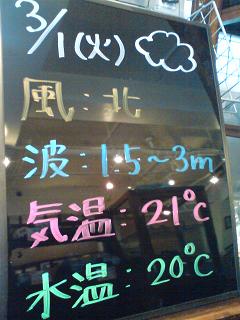 3/1(火)
風:北
波:1.5~3m
気温:21℃
水温:20℃